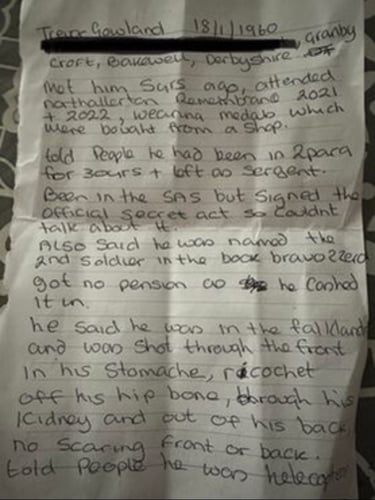 Trevor Gowland 18/1/1960
Granby
Croft, Bakewell, Derbyshire
met him 5yrs ago, attended
northallerton Remembranc 2021
+ 2022, wearing medals which
were bought from a shop.
told People he had been in 2para
for 30urs + left as sergent.
Been in the SAS but signed the
official secret act so couldnt
talk about it.
Also said he was named the
2nd soldier in the book bravo2zero
got no pension as he cashed
it in.
he said he was in the fallkland
and was shot through the front
in his stomache, ricochet
off his hip bone, through his
kidney and out of his back,
no scaring front or back.
told People he was helecopter